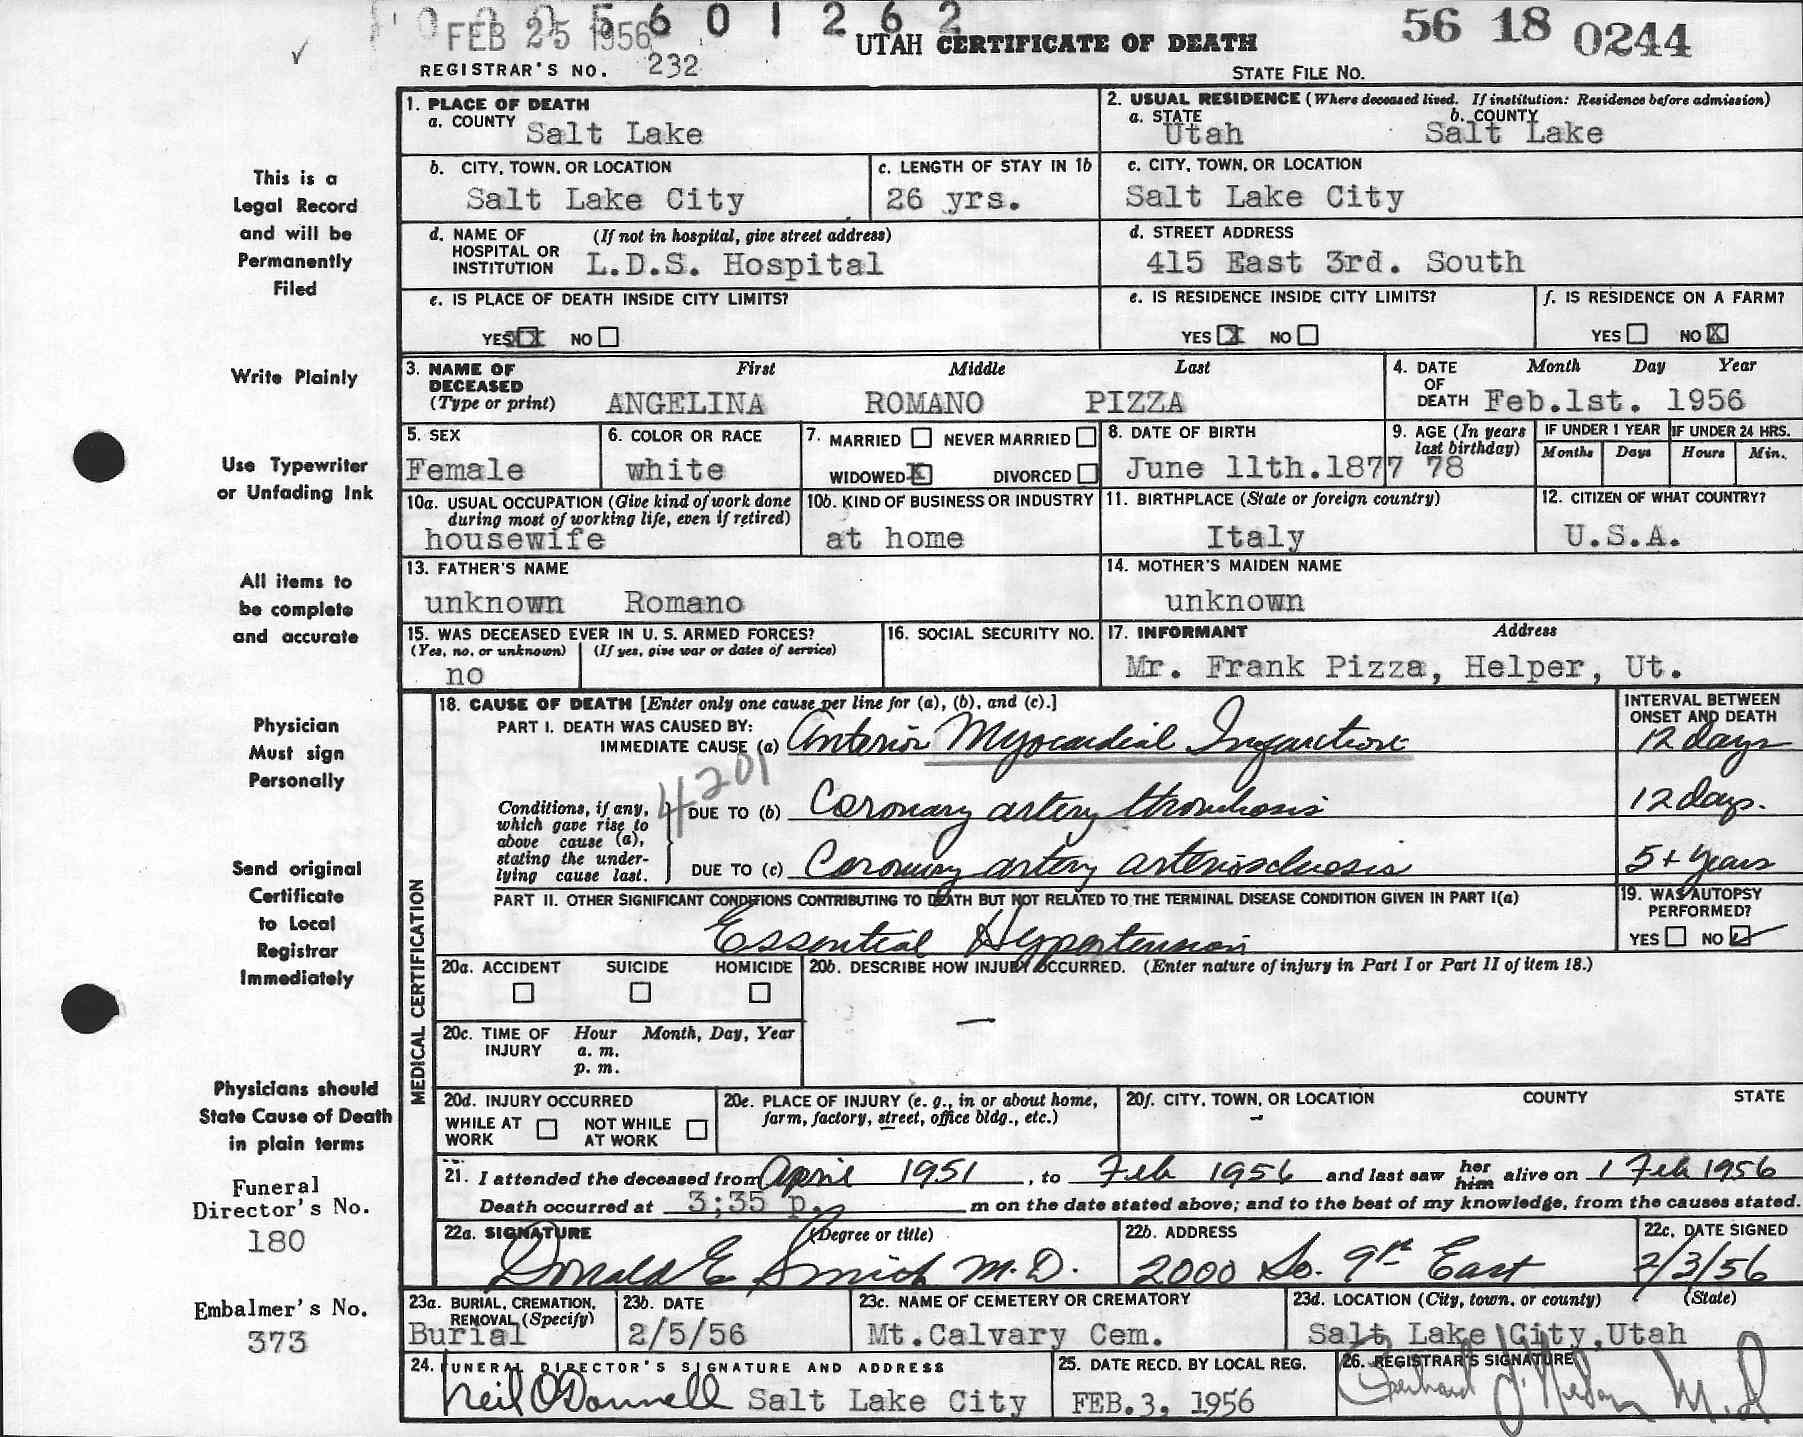 FEB 25 1956 601262
UTAH CERTIFICATE OF DEATH
56 18 0244
REGISTRAR'S NO. 232
STATE FILE NO.
1. PLACE OF DEATH
a. COUNTY Salt Lake
2. USUAL RESIDENCE (Where deceased lived. If institution: Residence before admission)
a. STATE Utah b. COUNTY Salt Lake
b. CITY, TOWN, OR LOCATION Salt Lake City
c. LENGTH OF STAY IN 1b 26 yrs.
c. CITY, TOWN, OR LOCATION Salt Lake City
d. NAME OF HOSPITAL OR INSTITUTION (If not in hospital, give street address) L.D.S. Hospital
d. STREET ADDRESS 415 East 3rd. South
e. IS PLACE OF DEATH INSIDE CITY LIMITS?
YES X NO
e. IS RESIDENCE INSIDE CITY LIMITS?
YES X NO
f. IS RESIDENCE ON A FARM?
YES NO X
3. NAME OF DECEASED (Type or print)
First Middle Last
ANGELINA ROMANO PIZZA
4. DATE OF DEATH Month Day Year
Feb.1st. 1956
5. SEX Female
6. COLOR OR RACE white
7. MARRIED NEVER MARRIED
WIDOWED X DIVORCED
8. DATE OF BIRTH June 11th.1877
9. AGE (In years last birthday) 78
IF UNDER 1 YEAR Months Days
IF UNDER 24 HRS. Hours Min.
10a. USUAL OCCUPATION (Give kind of work done during most of working life, even if retired)
housewife
10b. KIND OF BUSINESS OR INDUSTRY
at home
11. BIRTHPLACE (State or foreign country)
Italy
12. CITIZEN OF WHAT COUNTRY?
U.S.A.
13. FATHER'S NAME
unknown Romano
14. MOTHER'S MAIDEN NAME
unknown
15. WAS DECEASED EVER IN U. S. ARMED FORCES?
(Yes, no, or unknown) (If yes, give war or dates of service)
no
16. SOCIAL SECURITY NO.
17. INFORMANT Address
Mr. Frank Pizza, Helper, Ut.
MEDICAL CERTIFICATION
18. CAUSE OF DEATH [Enter only one cause per line for (a), (b), and (c).]
INTERVAL BETWEEN ONSET AND DEATH
PART I. DEATH WAS CAUSED BY:
IMMEDIATE CAUSE (a) Anterior Myocardial Infarction 12 days
4201
Conditions, if any, which gave rise to above cause (a), stating the underlying cause last.
DUE TO (b) Coronary artery thrombosis 12 days.
DUE TO (c) Coronary artery arteriosclerosis 5+ years
PART II. OTHER SIGNIFICANT CONDITIONS CONTRIBUTING TO DEATH BUT NOT RELATED TO THE TERMINAL DISEASE CONDITION GIVEN IN PART I(a)
Essential Hypertension
19. WAS AUTOPSY PERFORMED?
YES NO ✓
20a. ACCIDENT SUICIDE HOMICIDE
20b. DESCRIBE HOW INJURY OCCURRED. (Enter nature of injury in Part I or Part II of item 18.)
—
20c. TIME OF INJURY Hour Month, Day, Year
a. m.
p. m.
20d. INJURY OCCURRED
WHILE AT WORK NOT WHILE AT WORK
20e. PLACE OF INJURY (e. g., in or about home, farm, factory, street, office bldg., etc.)
20f. CITY, TOWN, OR LOCATION COUNTY STATE
21. I attended the deceased from April 1951, to Feb 1956 and last saw her him alive on 1 Feb 1956
Death occurred at 3;35 p. m on the date stated above; and to the best of my knowledge, from the causes stated.
22a. SIGNATURE (Degree or title)
Donald E Smith M.D.
22b. ADDRESS
2000 So. 9th East
22c. DATE SIGNED
2/3/56
23a. BURIAL, CREMATION, REMOVAL (Specify)
Burial
23b. DATE
2/5/56
23c. NAME OF CEMETERY OR CREMATORY
Mt.Calvary Cem.
23d. LOCATION (City, town, or county) (State)
Salt Lake City,Utah
24. FUNERAL DIRECTOR'S SIGNATURE AND ADDRESS
Neil O'Donnell Salt Lake City
25. DATE RECD. BY LOCAL REG.
FEB.3, 1956
26. REGISTRAR'S SIGNATURE
M.D
This is a
Legal Record
and will be
Permanently
Filed
Write Plainly
Use Typewriter
or Unfading Ink
All items to
be complete
and accurate
Physician
Must sign
Personally
Send original
Certificate
to Local
Registrar
Immediately
Physicians should
State Cause of Death
in plain terms
Funeral
Director's No.
180
Embalmer's No.
373